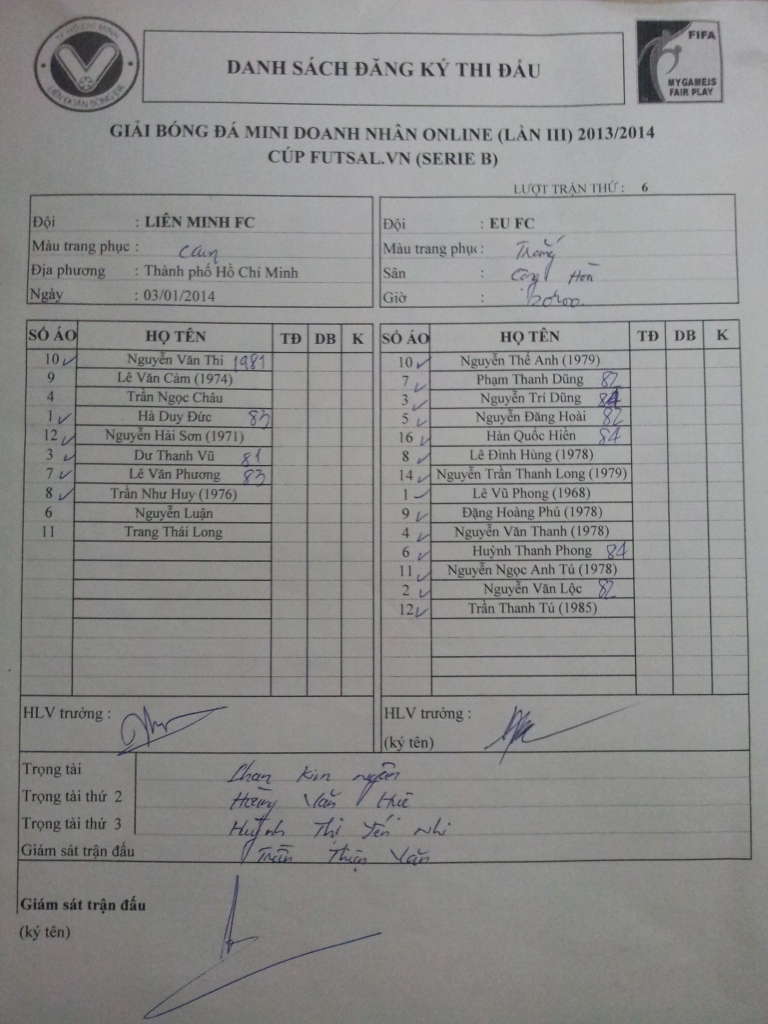 TP HỒ CHÍ MINH
LIÊN ĐOÀN BÓNG ĐÁ
DANH SÁCH ĐĂNG KÝ THI ĐẤU
FIFA
MY GAME IS
FAIR PLAY
GIẢI BÓNG ĐÁ MINI DOANH NHÂN ONLINE (LẦN III) 2013/2014
CÚP FUTSAL.VN (SERIE B)
LƯỢT TRẬN THỨ : 6
Đội : LIÊN MINH FC
Màu trang phục : Cam
Địa phương : Thành phố Hồ Chí Minh
Ngày : 03/01/2014
Đội : EU FC
Màu trang phục : Trắng
Sân : Cộng Hòa
Giờ : 20h00
SỐ ÁO HỌ TÊN TĐ DB K
10 Nguyễn Văn Thi 1981
9 Lê Văn Cảm (1974)
4 Trần Ngọc Châu
1 Hà Duy Đức 83
12 Nguyễn Hải Sơn (1971)
3 Dư Thanh Vũ 81
7 Lê Văn Phương 83
8 Trần Như Huy (1976)
6 Nguyễn Luận
11 Trang Thái Long
SỐ ÁO HỌ TÊN TĐ DB K
10 Nguyễn Thế Anh (1979)
7 Phạm Thanh Dũng 82
3 Nguyễn Trí Dũng 84
5 Nguyễn Đăng Hoài 82
16 Hàn Quốc Hiền 84
8 Lê Đình Hùng (1978)
14 Nguyễn Trần Thanh Long (1979)
1 Lê Vũ Phong (1968)
9 Đặng Hoàng Phú (1978)
4 Nguyễn Văn Thanh (1978)
6 Huỳnh Thanh Phong 84
11 Nguyễn Ngọc Anh Tú (1978)
2 Nguyễn Văn Lộc 82
12 Trần Thanh Tú (1985)
HLV trưởng :
HLV trưởng :
(ký tên)
Trọng tài Phan Kim Ngân
Trọng tài thứ 2 Hoàng Văn Huê
Trọng tài thứ 3 Huỳnh Thị Yến Nhi
Giám sát trận đấu Trần Thiện Văn
Giám sát trận đấu
(ký tên)